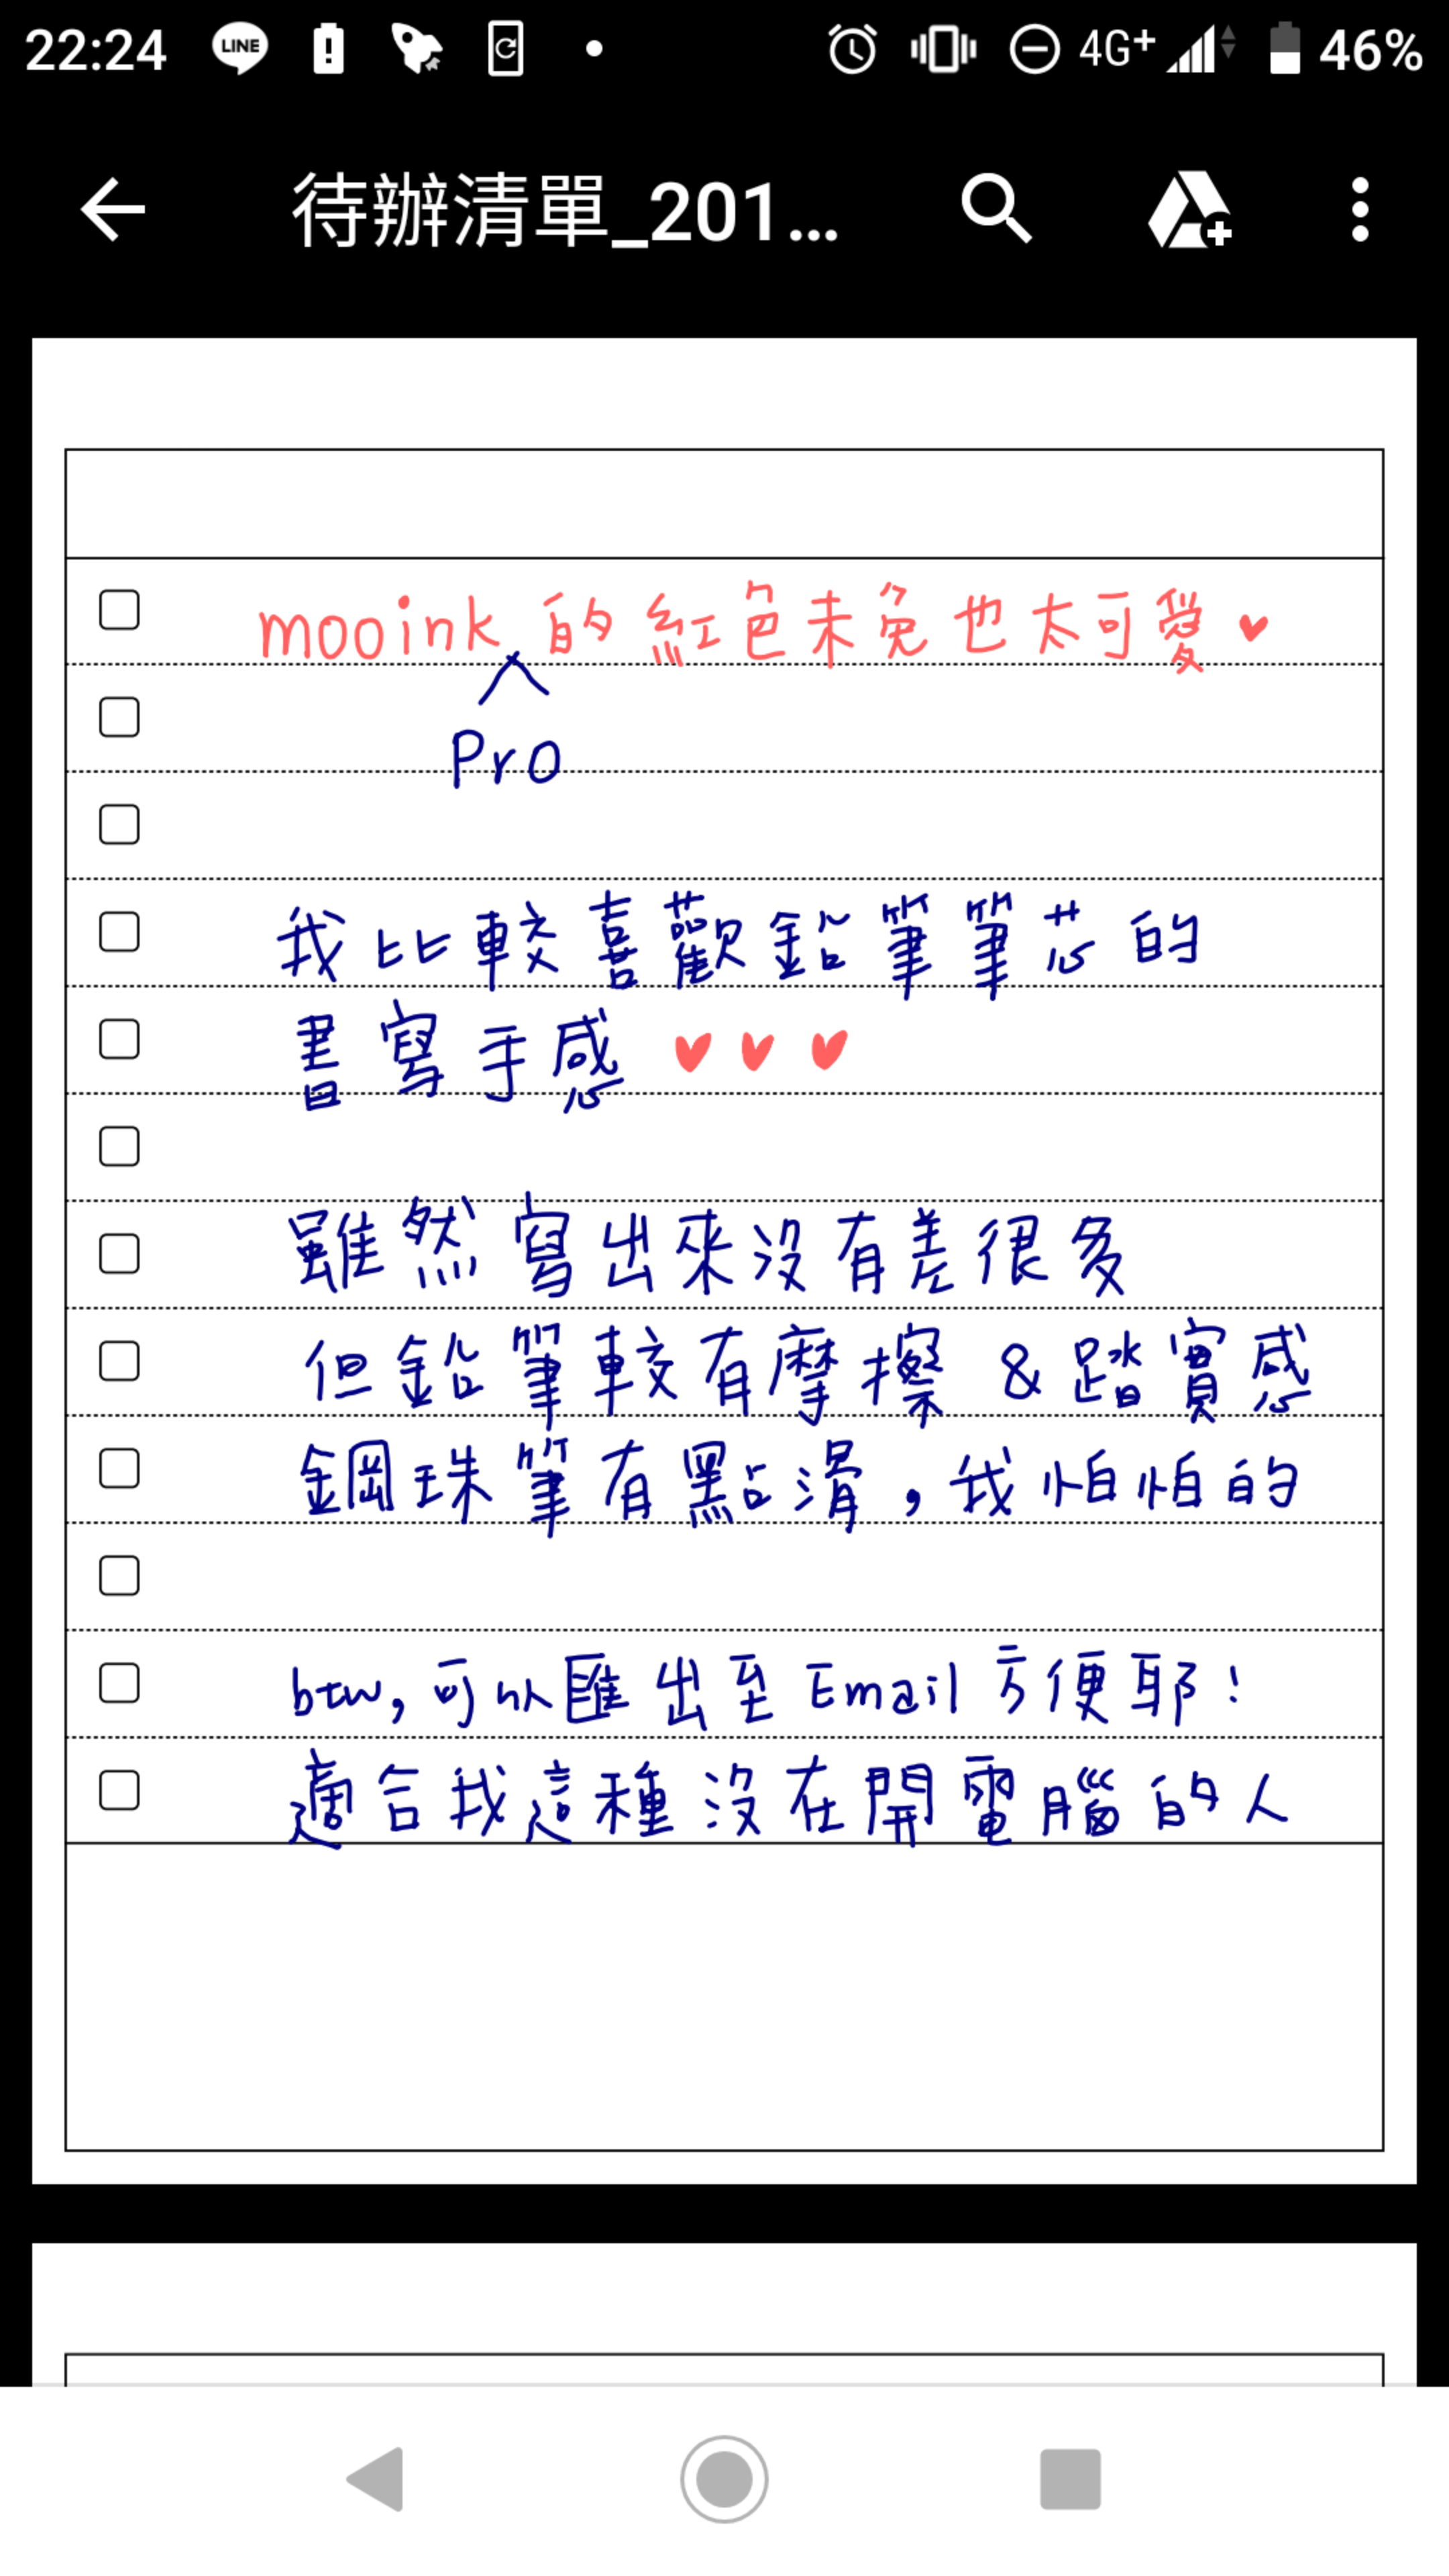 22:24 LINE 4G+ 46%
待辦清單_201...
mooink 的紅色未免也太可愛
Pro
我比較喜歡鉛筆筆芯的
書寫手感
雖然寫出來沒有差很多
但鉛筆較有摩擦 & 踏實感
鋼珠筆有點滑,我怕怕的
btw, 可以匯出至 Email 方便耶!
適合我這種沒在開電腦的人